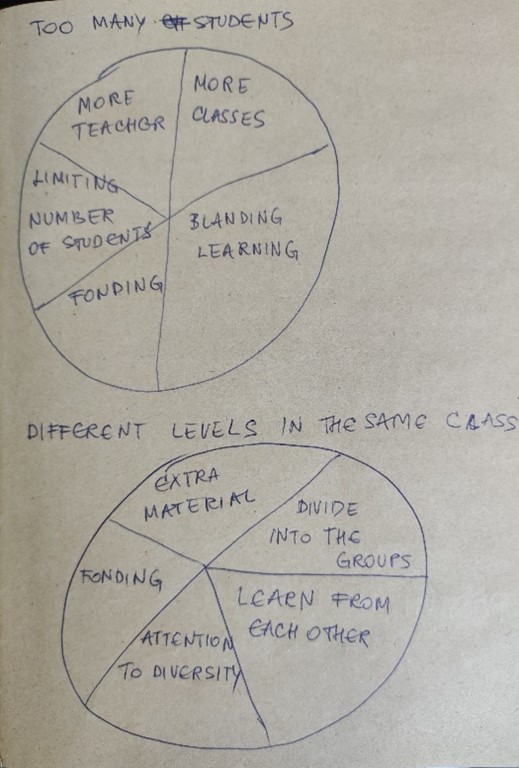 TOO MANY STUDENTS
MORE
TEACHER
MORE
CLASSES
LIMITING
NUMBER
OF STUDENTS
BLANDING
LEARNING
FONDING
DIFFERENT LEVELS IN THE SAME CLASS
EXTRA
MATERIAL
DIVIDE
INTO THE
GROUPS
FONDING
LEARN FROM
EACH OTHER
ATTENTION
TO DIVERSITY